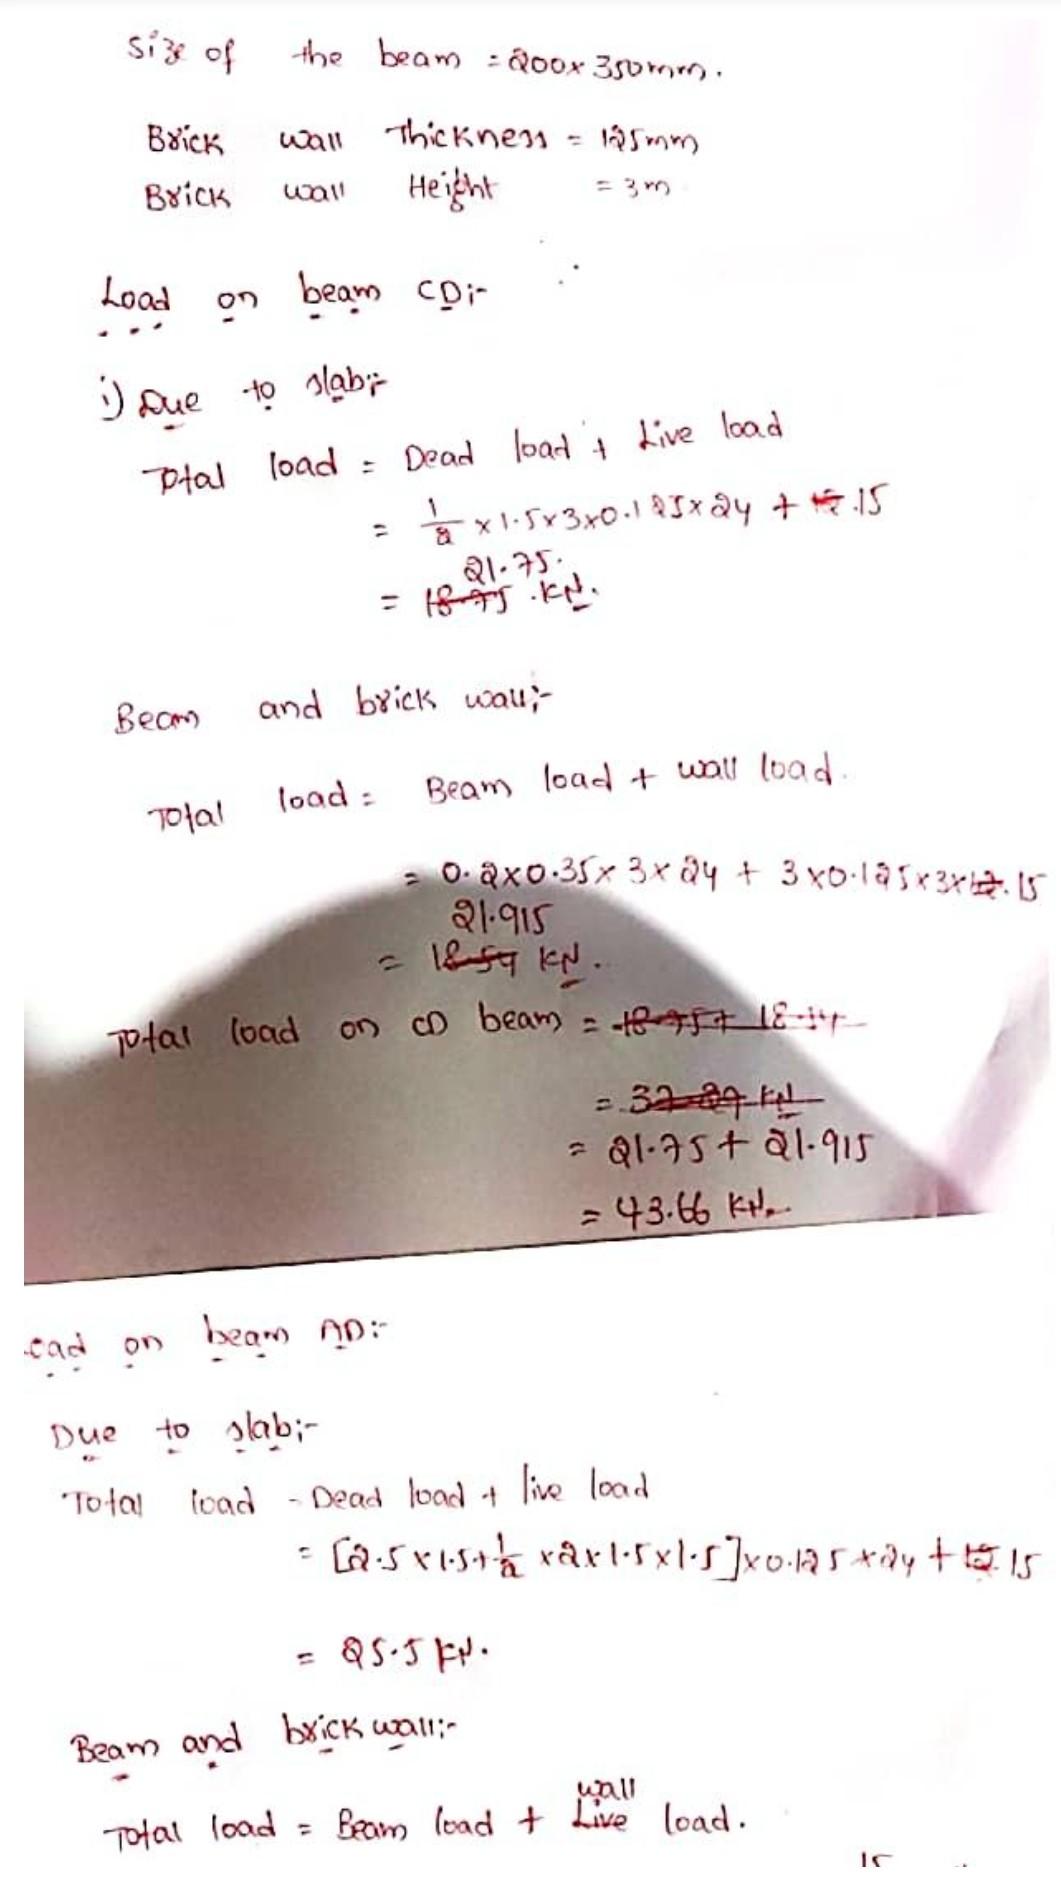 Size of the beam = 200x350mm.
Brick wall Thickness = 125mm
Brick wall Height = 3m
Load on beam CD:-
i) Due to slab:-
Total load = Dead load + Live load
= 1/2 x 1.5x3x0.125x24 + 12.15
21.75.
= 18.75 .KN.
Beam and brick wall:-
Total load = Beam load + wall load.
= 0.2x0.35x3x24 + 3x0.125x3x12.15
21.915
= 18.54 KN.
Total load on CD beam = 18.75+ 18.54
= 37.29 KN
= 21.75 + 21.915
= 43.66 KN.
oad on beam AD:-
Due to slab:-
Total load - Dead load + live load
= [2.5x1.5+1/2 x2x1.5x1.5]x0.125x24 + 12.15
= 25.5 KN.
Beam and brick wall:-
wall
Total load = Beam load + Live load.
15